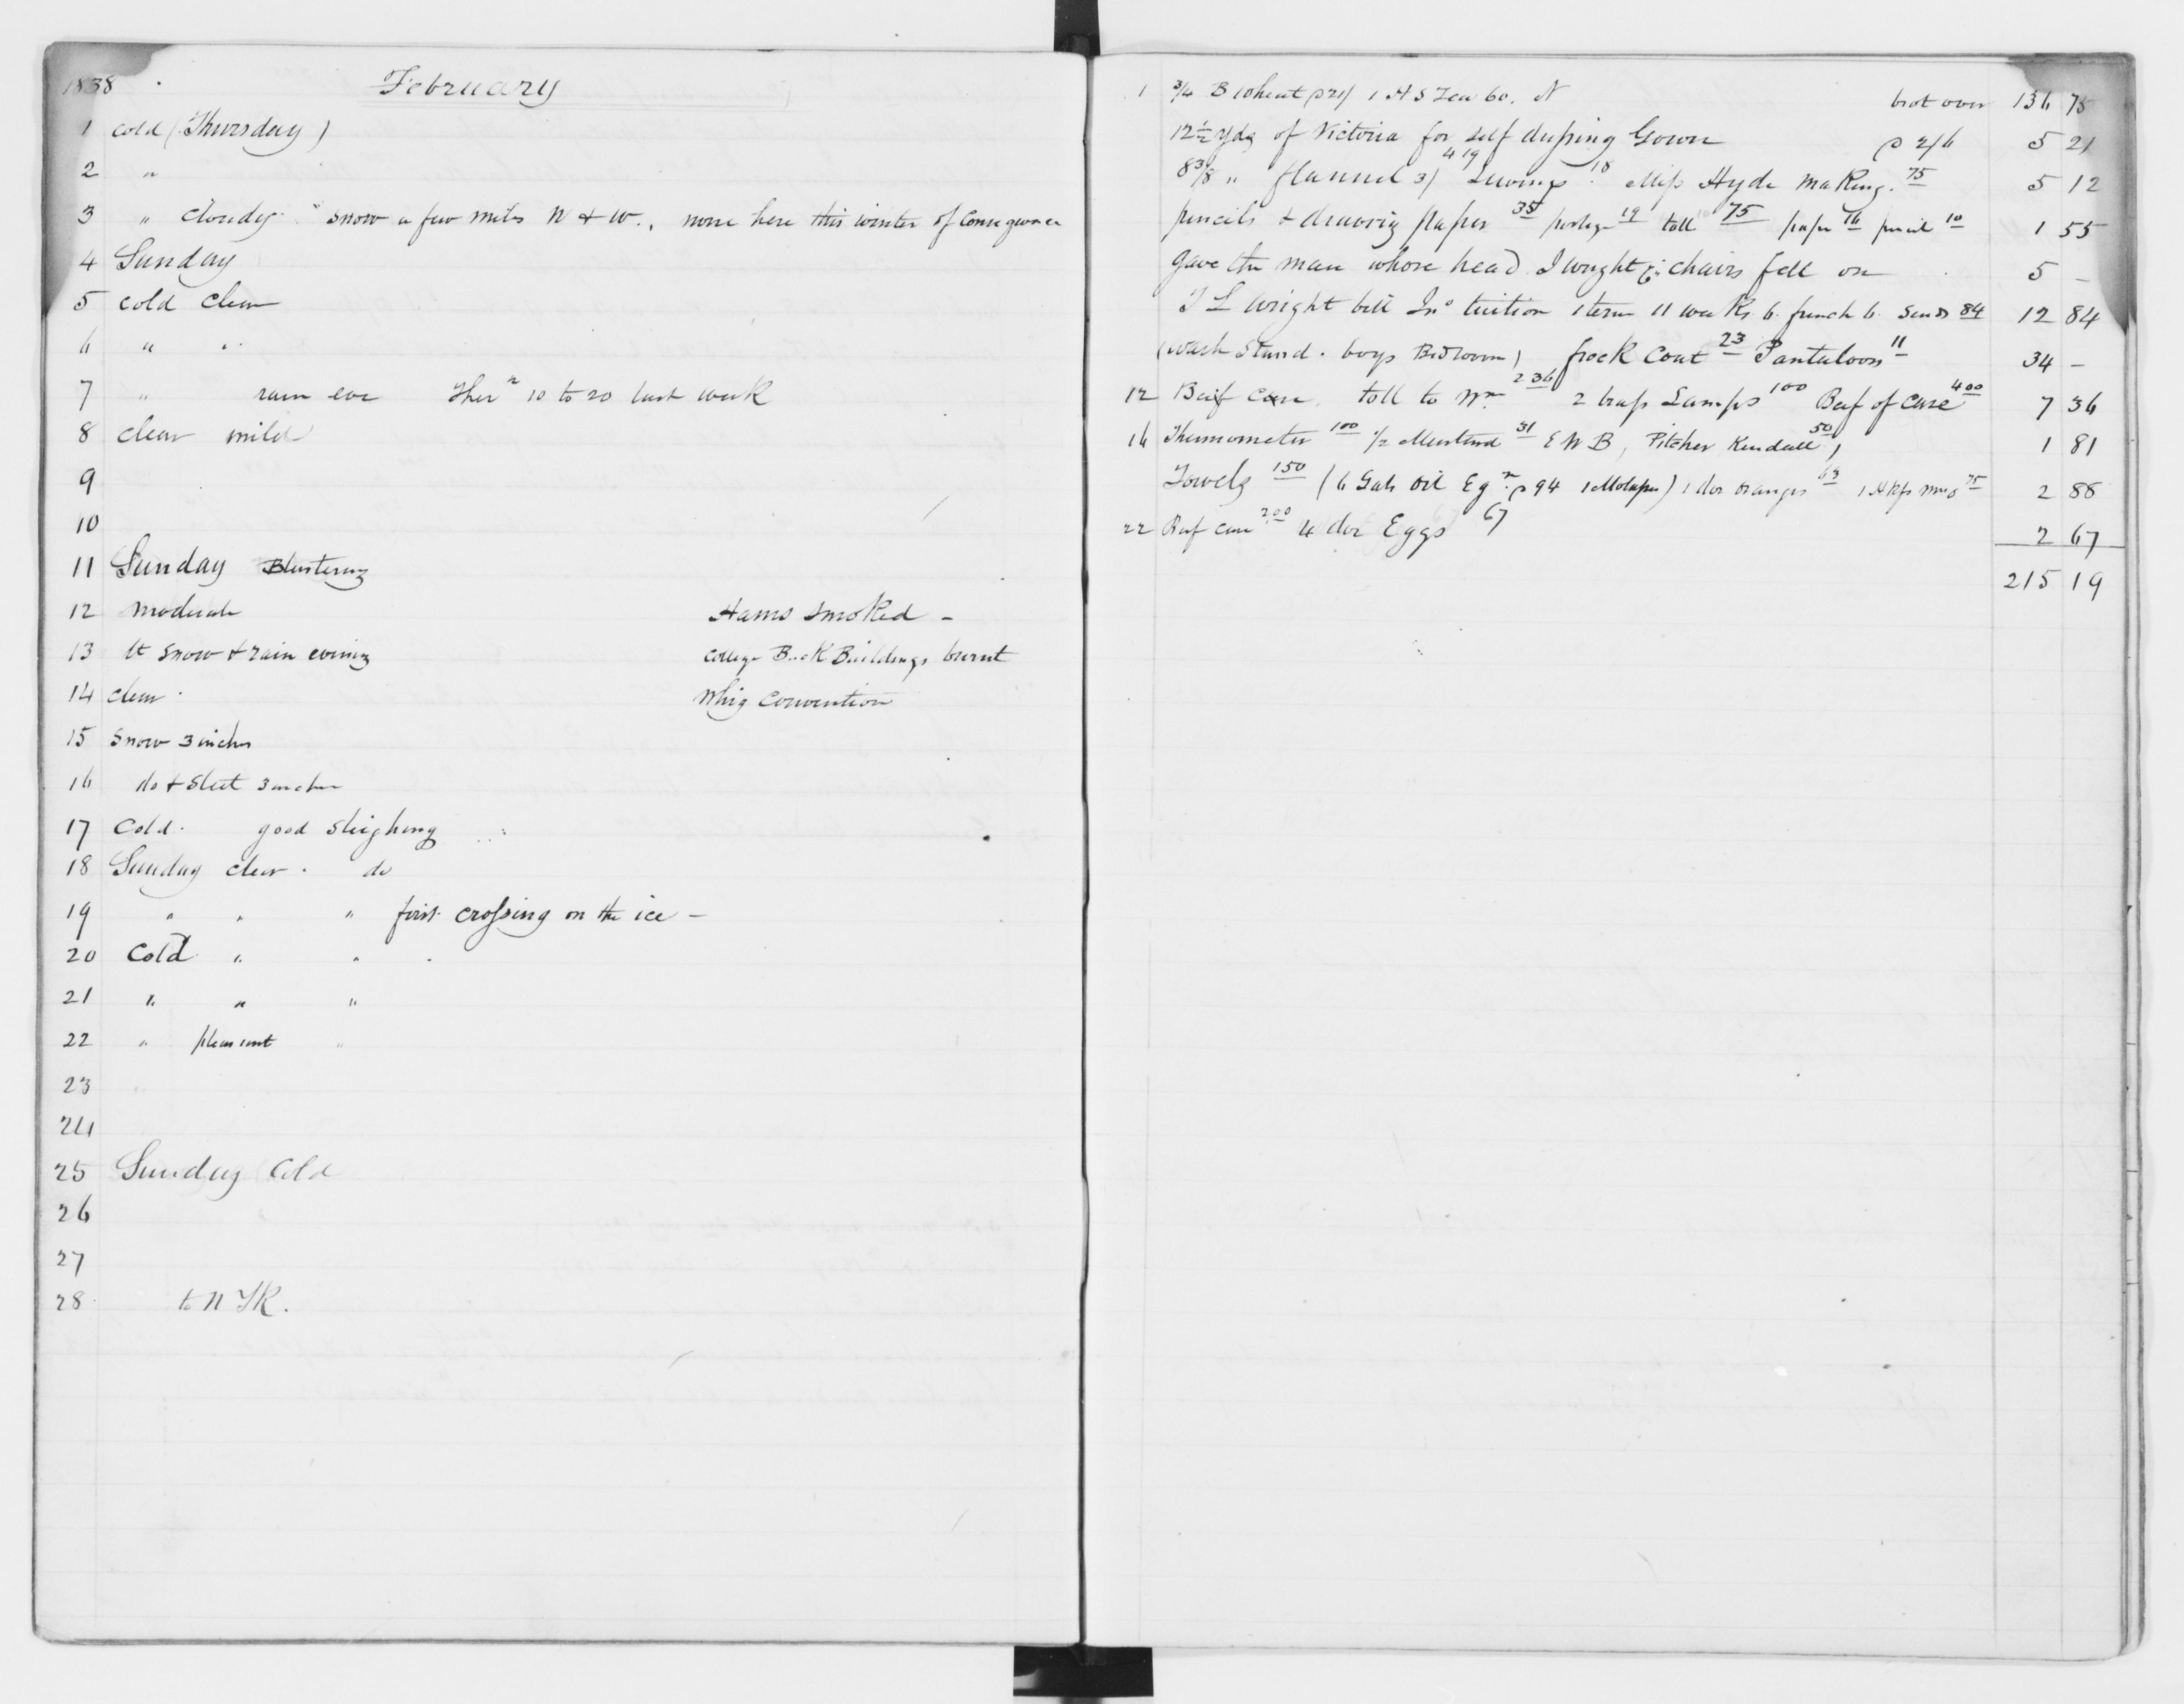 1838 February
1 cold (Thursday)
2 "
3 " cloudy " snow a few miles N & W., none here this winter of Consequence
4 Sunday
5 cold clear
6 " "
7 " rain eve Ther 10 to 20 last week
8 clear mild
9
10
11 Sunday Blustering
12 moderate Hams smoked -
13 lt snow & rain evening College Back Buildings burnt
14 clear. Whig Convention
15 Snow 3 inches
16 do & Sleet 3 inches
17 Cold. good sleighing
18 Sunday clear. do
19 " " " first crossing on the ice -
20 Cold " "
21 " " "
22 " pleasant "
23 "
24
25 Sunday Cold
26
27
28 to N YK.
1 3/4 B Wheat @ 21/ 1 H S Tea 60. N brot over 136 75
12½ yds of Victoria for self dressing Gown @ 2/6 5 21
8 3/8 " flannel 3/ 4 19 Sewings 18 Miss Hyde making. 75 5 12
pencils & drawing paper 35 postage 19 toll 75 paper 16 pencil 10 1 55
gave the man whose head I Wright chairs fell on 5 -
I L Wright bill Jno tuition 1 term 11 weeks 6 french 6 Sends 84 12 84
(wash Stand. boys Bedroom) frock Coat 23 Pantaloons 11 34 -
12 Beef Case toll to Wm 2 36 2 brass Lamps 100 Beef of Case 400 7 36
16 Thermometer 100 1/2 Mustard 31 E W B, Pitcher Kendall 50) 1 81
Towels 150 (6 Gals Oil @ 94 1 Molasses) 1 doz oranges 63 75 2 88
22 Beef case 200 4 doz Eggs 67 2 67
215 19